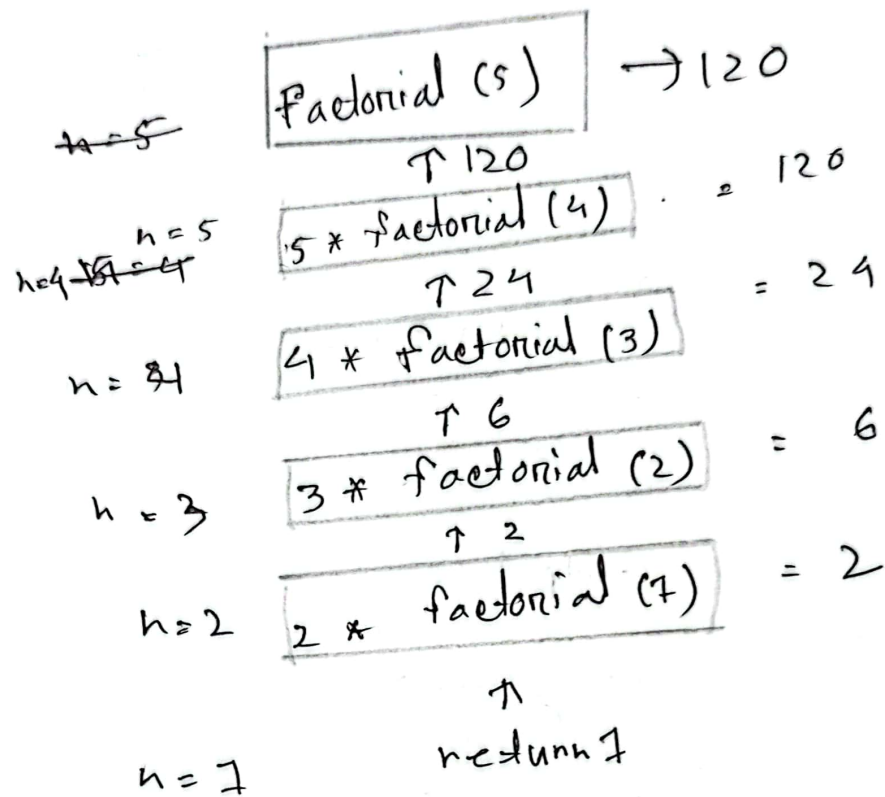 factorial (5) → 120
n = 5
↑ 120
n = 5 5 * factorial (4) = 120
n=4
↑ 24
n = 4 4 * factorial (3) = 24
↑ 6
n = 3 3 * factorial (2) = 6
↑ 2
n = 2 2 * factorial (1) = 2
↑
n = 1 return 1